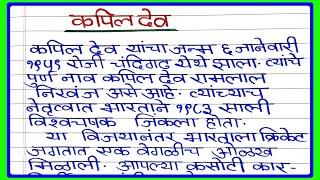 कपिल देव
कपिल देव यांचा जन्म ६ जानेवारी
१९५९ रोजी चंदिगढ येथे झाला. त्यांचे
पुर्ण नाव कपिल देव रामलाल
निखंज असे आहे. त्यांच्याच
नेतृत्वात भारताने १९८३ साली
विश्वचषक जिंकला होता.
या विजयानंतर भारताला क्रिकेट
जगतात एक वेगळीच ओळख
मिळाली. आपल्या कसोटी कार-